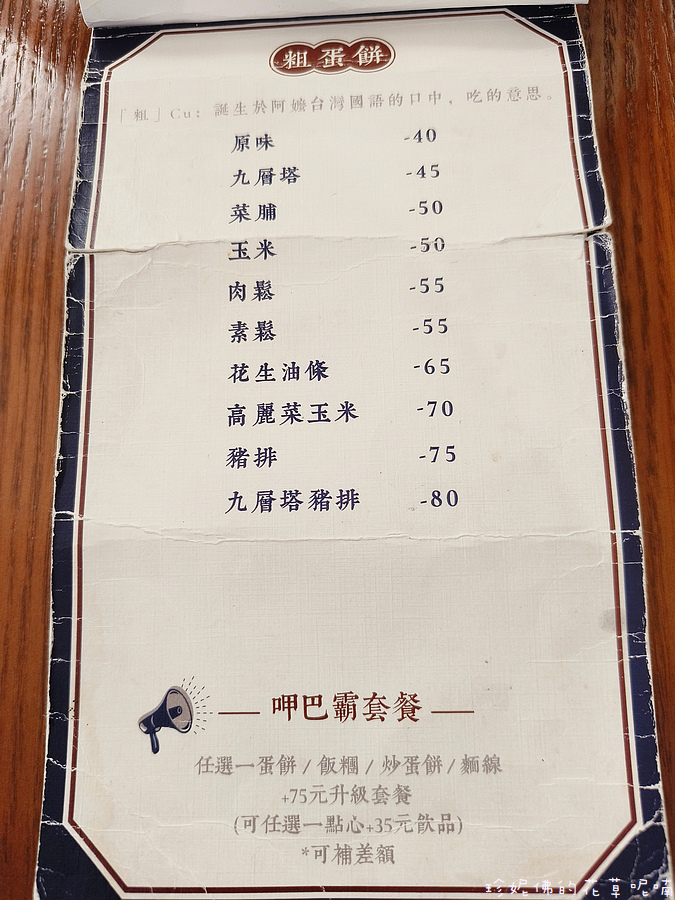 粗蛋餅
「粗」Cu：誕生於阿嬤台灣國語的口中，吃的意思。
原味 -40
九層塔 -45
菜脯 -50
玉米 -50
肉鬆 -55
素鬆 -55
花生油條 -65
高麗菜玉米 -70
豬排 -75
九層塔豬排 -80
呷巴霸套餐
任選一蛋餅/飯糰/炒蛋餅/麵線
+75元升級套餐
(可任選一點心+35元飲品)
*可補差額
珍妮佛的花草呢喃